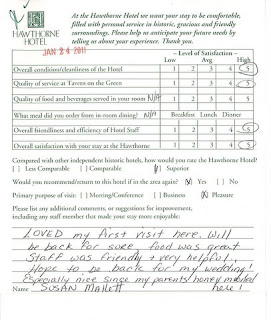 At the Hawthorne Hotel we want your stay to be comfortable,
filled with personal service in historic, gracious and friendly
surroundings. Please help us anticipate your future needs by
telling us about your experience. Thank you.
HAWTHORNE
HOTEL
JAN 24 2011
Level of Satisfaction
Low Avg High
Overall condition/cleanliness of the Hotel 1 2 3 4 5
Quality of service at Tavern on the Green 1 2 3 4 5
Quality of food and beverages served in your room N/A 1 2 3 4 5
What meal did you order from in-room dining? N/A Breakfast Lunch Dinner
Overall friendliness and efficiency of Hotel Staff 1 2 3 4 5
Overall satisfaction with your stay at the Hawthorne 1 2 3 4 5
Compared with other independent historic hotels, how would you rate the Hawthorne Hotel?
[ ] Less Comparable [ ] Comparable [✓] Superior
Would you recommend/return to this hotel if in the area again? [✓] Yes [ ] No
Primary purpose of visit: [ ] Meeting/Conference [ ] Business [✓] Pleasure
Please list any additional comments, or suggestions for improvement,
including any staff member that made your stay more enjoyable:
LOVED my first visit here. Will
be back for sure. food was great
Staff was friendly + very helpful.
Hope to be back for my wedding!
Especially nice since my parents honeymooned
Name SUSAN here!